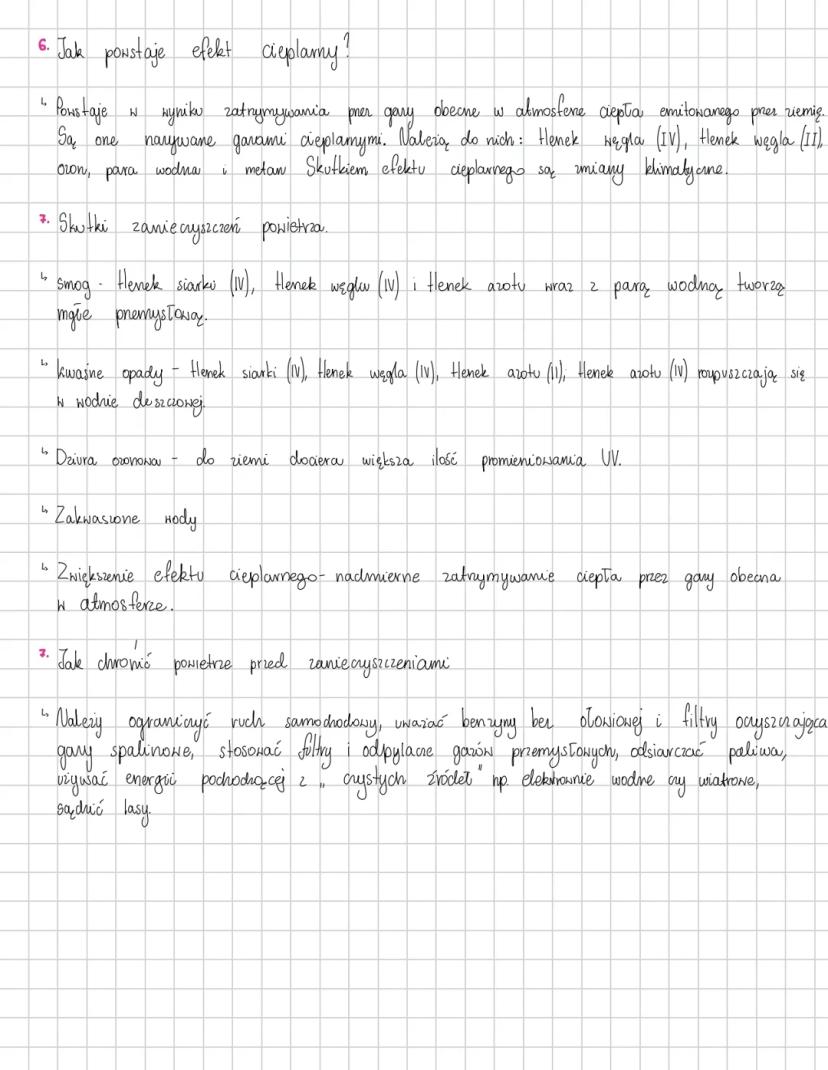 6. Jak powstaje efekt cieplarny?
↳ Powstaje w wyniku zatrzymywania przez gazy obecne w atmosferze ciepła emitowanego przez ziemię.
Są one nazywane gazami cieplarnymi. Należą do nich: tlenek węgla (IV), tlenek węgla (II),
ozon, para wodna i metan Skutkiem efektu cieplarnego są zmiany klimatyczne.
7. Skutki zanieczyszczeń powietrza.
↳ smog - tlenek siarki (IV), tlenek węglu (IV) i tlenek azotu wraz z parą wodną tworzą
mgłe przemysłową.
↳ kwaśne opady - tlenek siarki (IV), tlenek węgla (IV), tlenek azotu (II), tlenek azotu (IV) rozpuszczają się
w wodzie deszczowej.
↳ Dziura ozonowa - do ziemi dociera większa ilość promieniowania UV.
↳ Zakwaszone wody
↳ Zwiększenie efektu cieplarnego - nadmierne zatrzymywanie ciepła przez gazy obecna
w atmosferze.
7. Jak chronić powietrze przed zanieczyszczeniami
↳ Należy ograniczyć ruch samochodowy, uważać benzyny bez ołowionej i filtry oczyszczająca
gazy spalinowe, stosować filtry i odpylacze gazów przemysłowych, odsiarczać paliwa,
używać energii pochodzącej z „czystych źródeł" np. elektrownie wodne czy wiatrowe,
sądzić lasy.